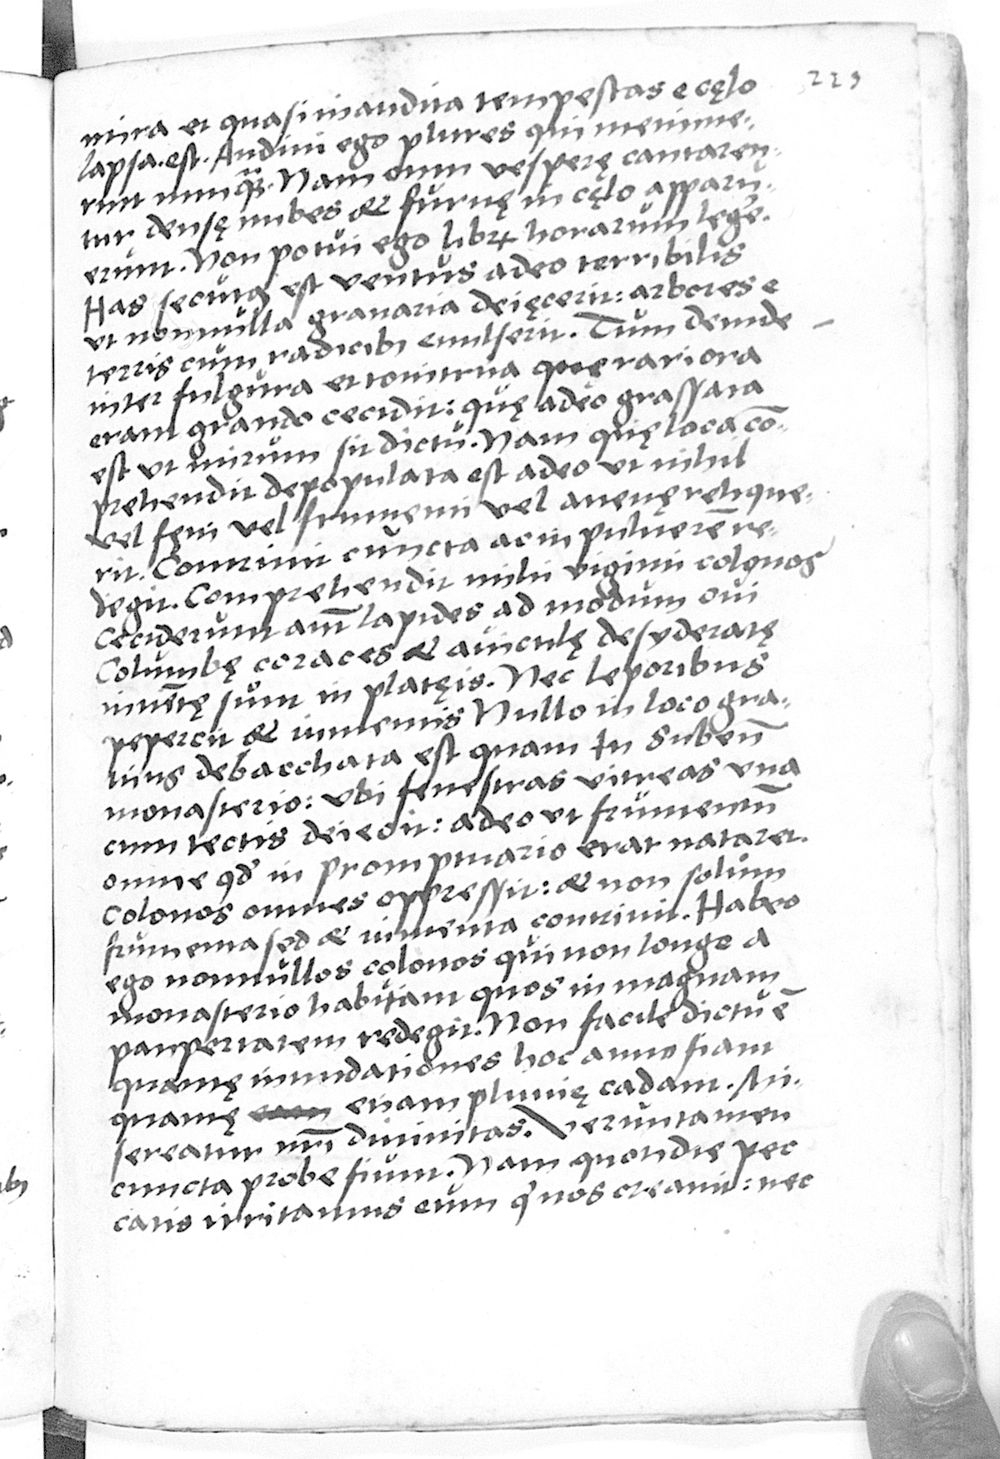 229
mira et quasi inaudita tempestas e cęlo
lapsa est. Audiui ego plures qui memine-
rint nunq̃. Nam cum vesperę cantaren-
tur densę nubes & furuę in cęlo apparu-
erunt. Non potui ego libr. horarum lege͂.
Has secutꝯ est ventus adeo terribilis
vt nonnulla granaria deięcerit: arbores e
terris cum radicibꝯ euulserit. Tum deinde
inter fulgura et tonitrua quę rariora
erant grando cecidit: quę adeo grassata
est vt mirum sit dictu. Nam quę loca co͂-
prehendit depopulata est adeo vt nihil
vel fęni vel frumenti vel auenę relique-
rit. Contriuit cuncta ac in puluere͂ re-
degit. Comprehendit mihi viginti colonos
Ceciderunt aut͂ lapides ad modum oui
Columbę coraces & auiculę desyderatę
inue͂tę sunt in platęis. Nec leporibus
pepercit & iumentis Nullo in loco gra-
uius debacchata est quam in Suben͂
monasterio: vbi fenestras vitreas vna
cum tectis deiecit: adeo vt frumentu͂
omne qd̃ in promptuario erat nataret.
Colonos omnes oppressit: & non solum
frumenta sed & iumenta contriuit. Habeo
ego nonnullos colonos qui non longe a
monasterio habitant quos in magnam
paupertatem redegit. Non facile dictu e͂
quantę inundationes hoc anno fiant
quantę etiam pluuię cadant. Mi-
sereatur nr̃i diuinitas. Veruntamen
cuncta probe fiunt. Nam quotidie pec
catis irritamus eum q̃ nos creauit: nec